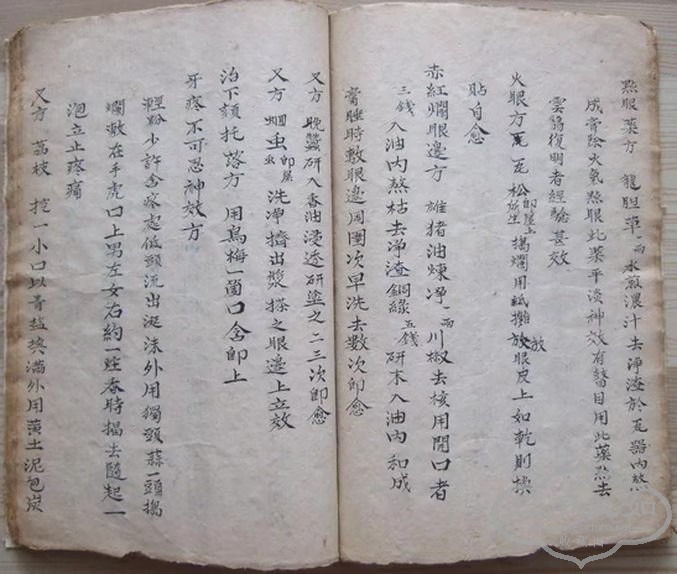 點眼藥方 龍胆草一兩 水煎濃汁去净渣於瓦器内熬
成膏除火氣點眼此藥平淡神效有瞽目用此藥點去
雲翳復明者經驗甚效
火眼方 瓦瓦松即屋上所生 搗爛用紙攤放眼皮上如乾則換
放
貼自愈
赤紅爛眼邊方 雄猪油煉净一兩 川椒去核用開口者
三錢 入油内熬枯去净渣銅綠五錢 研末入油内和成
膏睡時敷眼邊周圍次早洗去數次即愈
又方 晚蠶研入香油浸透研塗之二三次即愈
又方 蛔虫 洗净擠出漿搽之眼邊上立效
治下頦托落方 用烏梅一箇口含即上
牙疼不可忍神效方
輕粉少許含疼處低頭流出涎沫外用獨頭蒜一頭搗
爛敷在手虎口上男左女右約一炷香時揭去隨起一
泡立止疼痛
又方 荔枝 挖一小口以青塩填滿外用黄土泥包炭